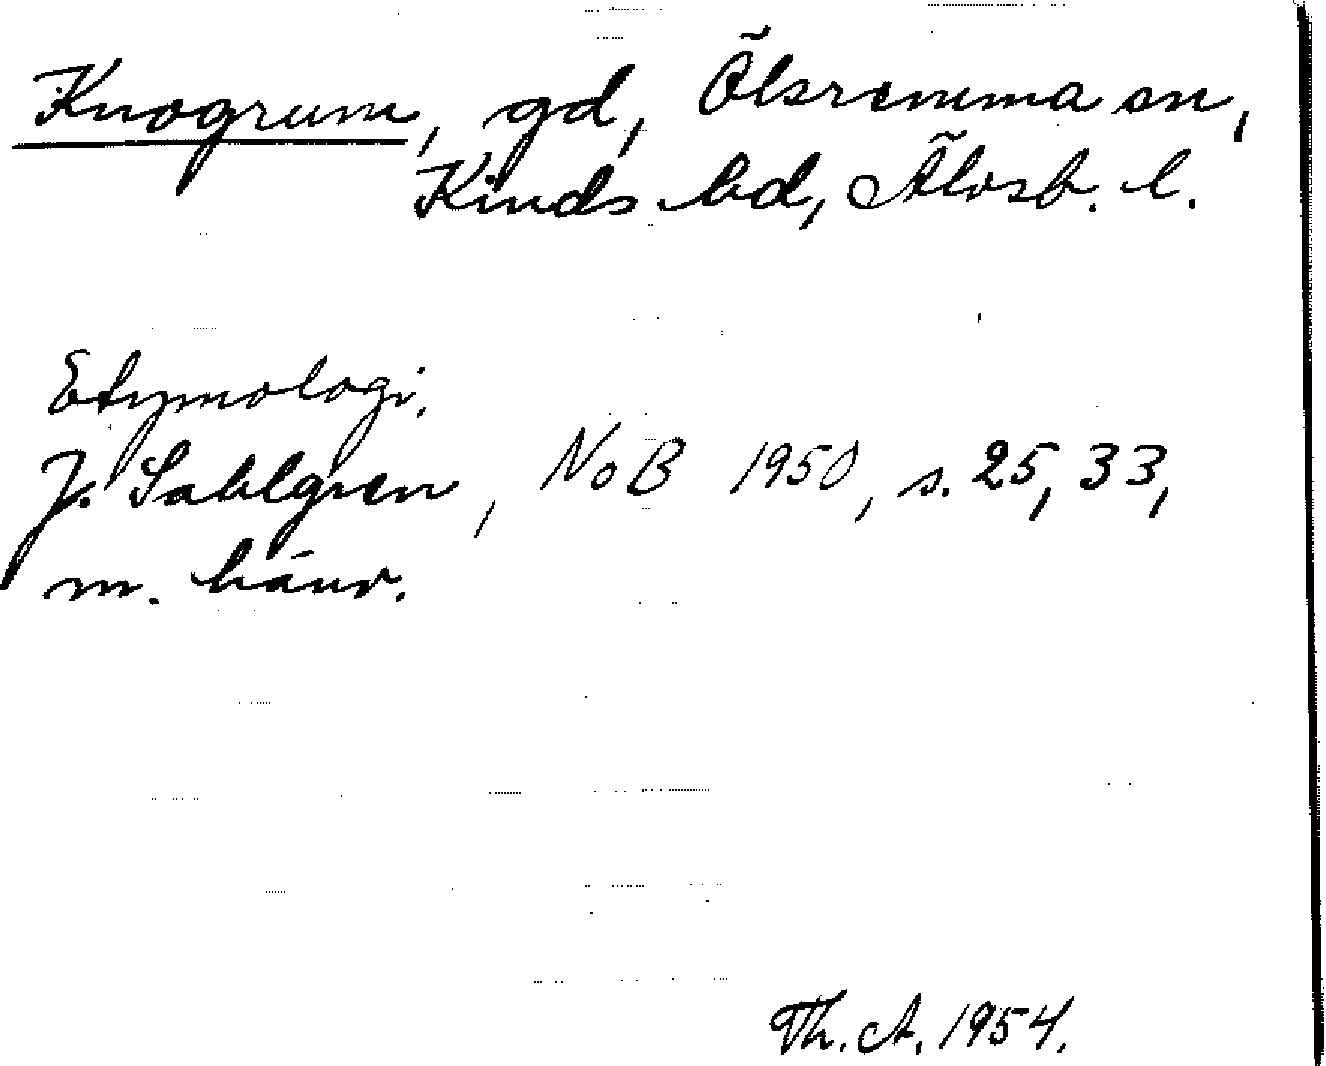 Knogrum, gd, Ölsremma sn,
Kinds hd, Älvsb. l.
Etymologi.
J. Sahlgren, NoB 1950, s. 25, 33,
m. hänv.
Th. A. 1954.